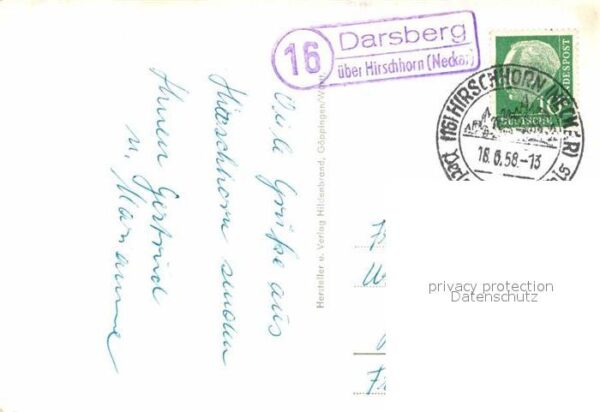 16
Darsberg
über Hirschhorn (Neckar)
DEUTSCHE
BUNDESPOST
(16) HIRSCHHORN (NECKAR)
18.6.58.-13
Viele Grüße aus
Hirschhorn senden
Ihnen Gertrud
u. Marianne
Hersteller u. Verlag Hildenbrand, Göppingen/Württ.
privacy protection
Datenschutz